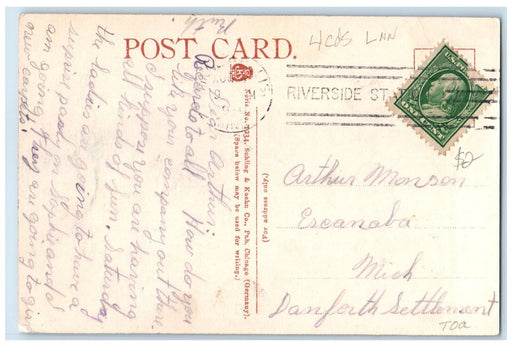 POST CARD.
4cds LNN
RIVERSIDE ST
Arthur Monson
Escanaba
Mich
Danforth Settlement
$2
TOA
Series No. 7234. Suhling & Koehn Co., Pub. Chicago (Germany).
(Space below may be used for writing.)
(For address only.)
Ruth
Regards to all
Arthur: How do you
like your company out there
I suppose you are having
all kinds of fun. Saturday
the ladies are going to have a
surprise party for Sophie and I
am going. They are going to give
new cards.